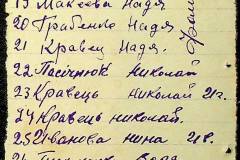 19 Макеева Надя
20 Грабенко Надя
21 Кравец Надя.
22 Пасічнюк Николай
23 Кравець Николай 21г.
24 Кравець николай.
25 Иванова нина 21в.